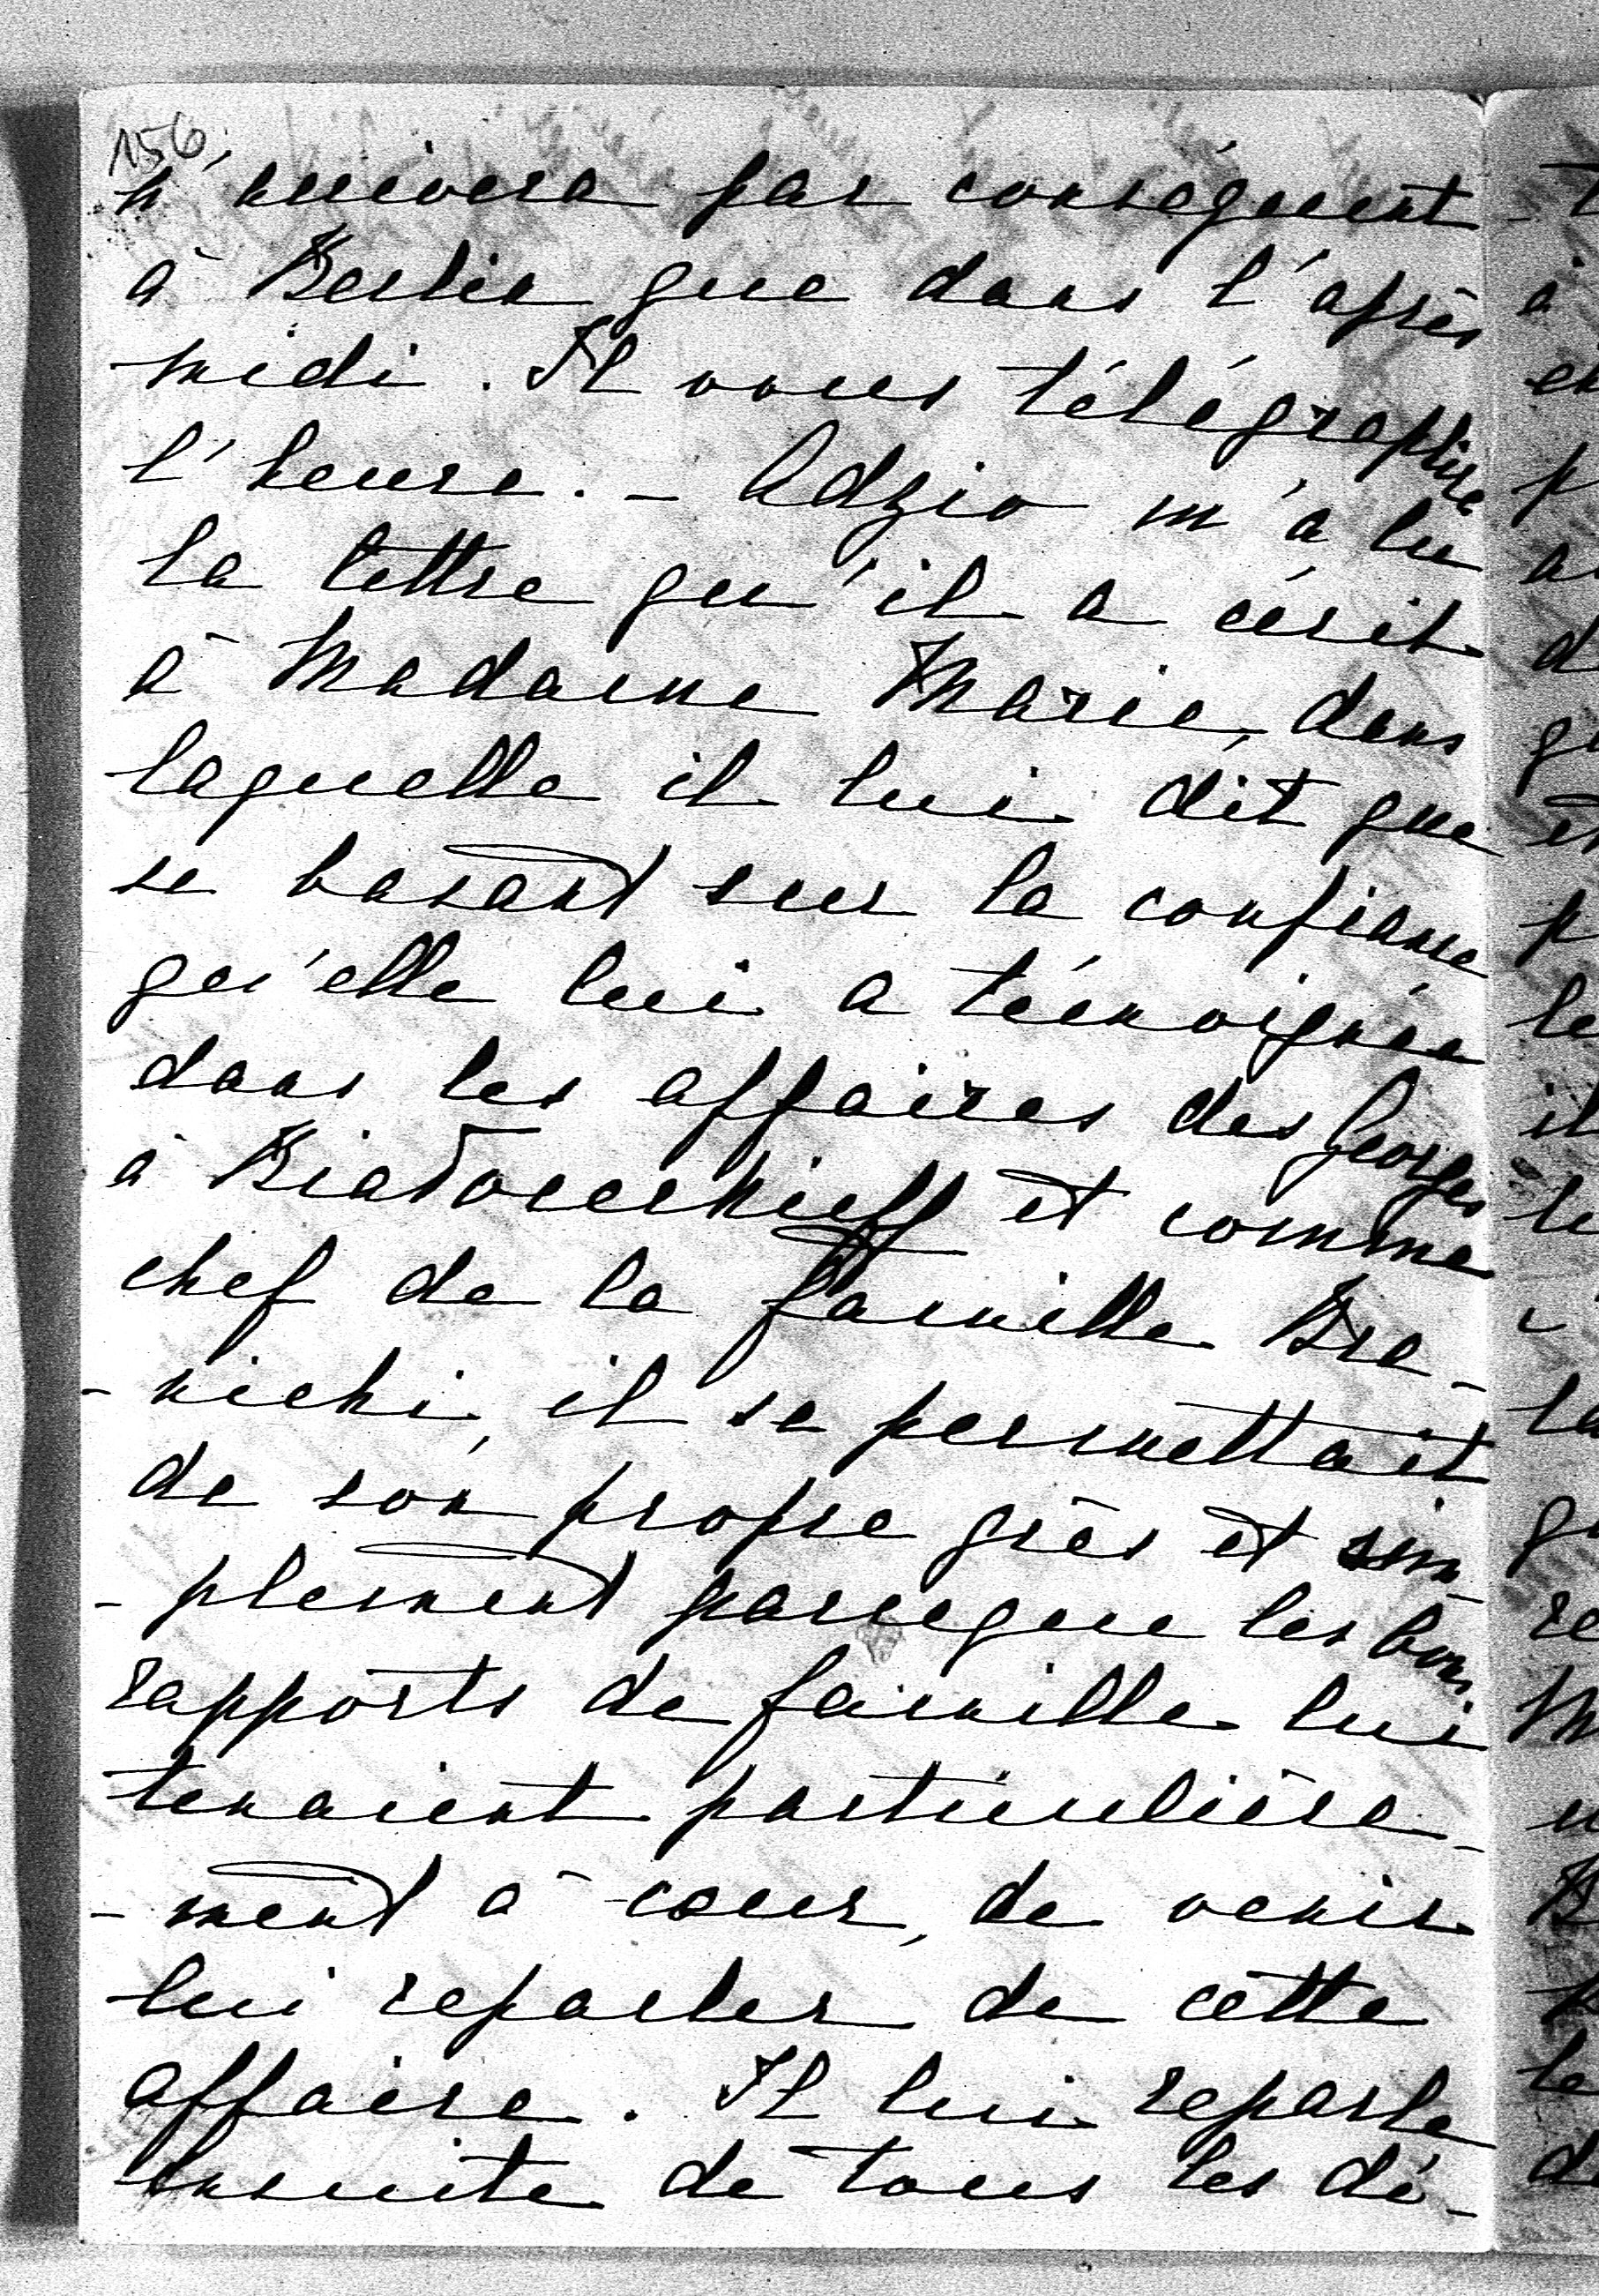 156
n'arrivera par conséquent
à Berlin que dans l'après
midi. Il vous télégraphie
l'heure. - Adzio m'a lu
la lettre qu'il a écrit
à Madame Marie, dans
laquelle il lui dit que
se basant sur la confiance
qu'elle lui a témoignée
dans les affaires des Georges
à et comme
chef de la famille Bra-
-nicki, il se permettait
de son propre grès et sim-
-plement parceque les bons
rapports de famille lui
tenaient particulière-
-ment à cœur, de venir
lui reparler de cette
affaire. Il lui reparle
ensuite de tous les dé-